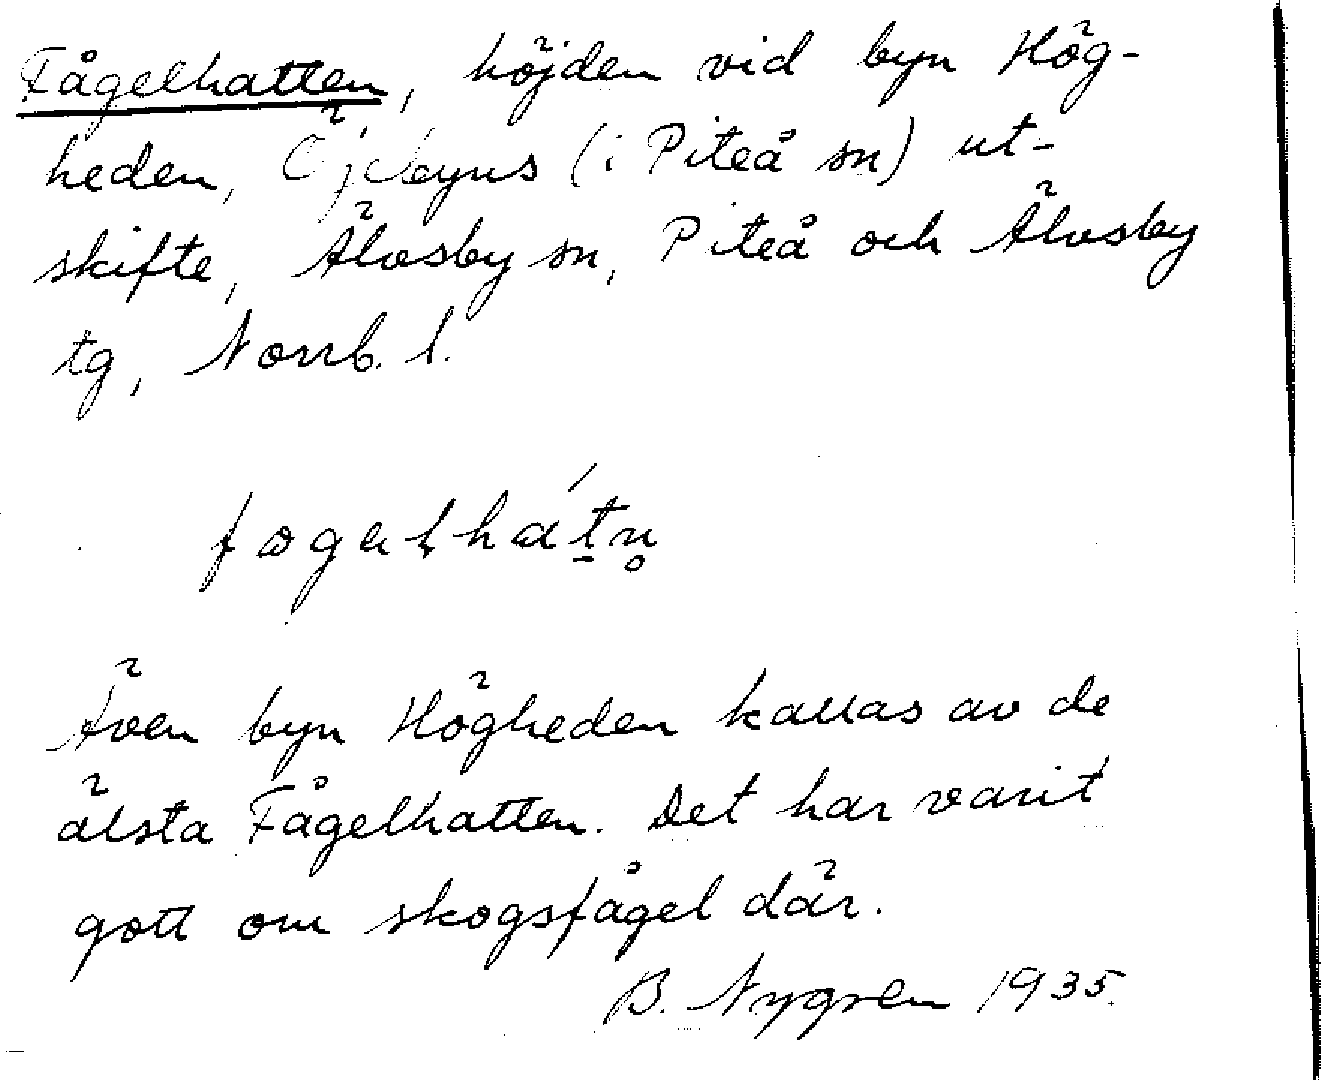 Fågelhatten, höjden vid byn Hög-
heden, Öjebyns (i Piteå sn) ut-
skifte, Älvsby sn, Piteå och Älvsby
tg, Norrb. l.
Även byn Högheden kallas av de
älsta Fågelhatten. Det har varit
gott om skogsfågel där.
B. Nygren 1935.